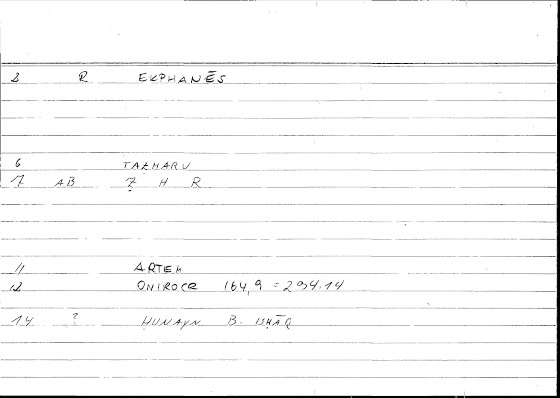 2 R EKPHANĒS
6 TAẒHARU
7 AB Ẓ H R
11 ARTEM
12 ONIROCR 164,9 = 294.14
14 ? ḤUNAYN B. ISḤĀQ